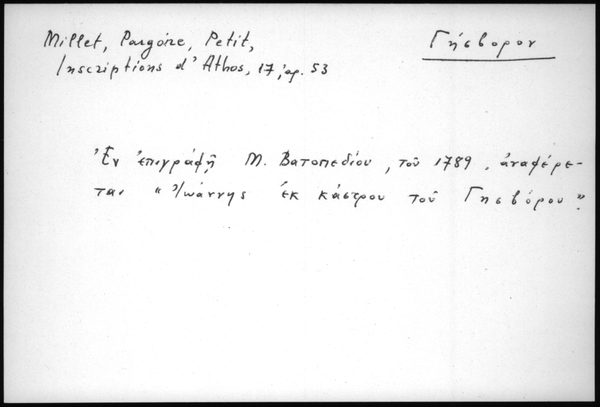 Millet, Pargoire, Petit,
Γήσβορον
Inscriptions d'Athos, 17, ἀρ. 53
Ἐν ἐπιγράφῇ Μ. Βατοπεδίου, τοῦ 1789, ἀναφέρε-
ται "Ἰωάννης ἐκ κάστρου τοῦ Γησβόρου".